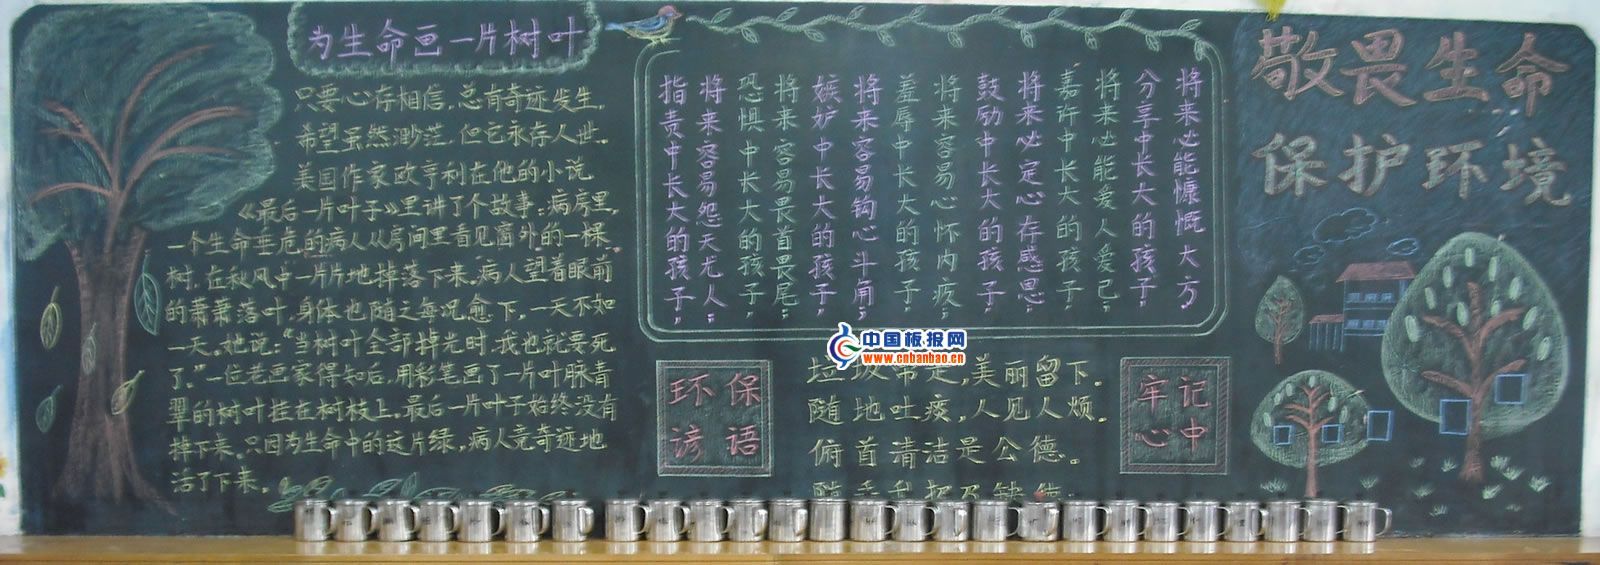 为生命画一片树叶
只要心存相信，总有奇迹发生，
希望虽然渺茫，但它永存人世。
美国作家欧亨利在他的小说
《最后一片叶子》里讲了个故事：病房里，
一个生命垂危的病人从房间里看见窗外的一棵
树，在秋风中一片片地掉落下来。病人望着眼前
的萧萧落叶，身体也随之每况愈下，一天不如
一天。她说：“当树叶全部掉光时，我也就要死
了。”一位老画家得知后，用彩笔画了一片叶脉青
翠的树叶挂在树枝上。最后一片叶子始终没有
掉下来。只因为生命中的这片绿，病人竟奇迹地
活了下来。
指责中长大的孩子，
将来容易怨天尤人；
恐惧中长大的孩子，
将来容易畏首畏尾；
嫉妒中长大的孩子，
将来容易钩心斗角；
羞辱中长大的孩子，
将来容易心怀内疚；
鼓励中长大的孩子，
将来必定心存感恩；
嘉许中长大的孩子，
将来必能爱人爱己；
分享中长大的孩子，
将来必能慷慨大方。
中国板报网
www.cnbanbao.cn
环保
谚语
垃圾带走，美丽留下。
随地吐痰，人见人烦。
俯首清洁是公德。
牢记
心中
敬畏生命
保护环境